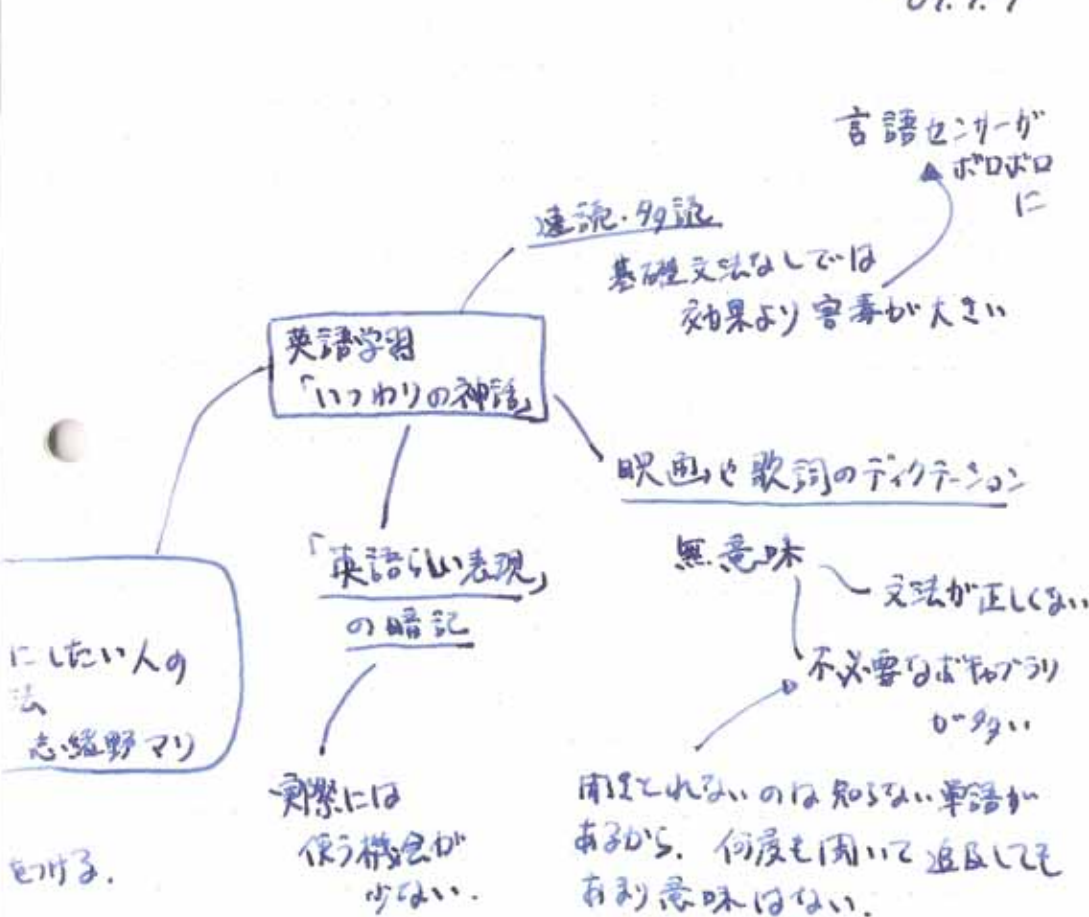 言語センサーが
ボロボロ
に
速読・多読
基礎文法なしでは
効果より害毒が大きい
英語学習
「いつわりの神話」
映画や歌詞のディクテーション
無意味
文法が正しくない
不必要なボキャブラリ
が多い
「英語らしい表現」
の暗記
実際には
使う機会が
少ない.
聞きとれないのは知らない単語が
あるから. 何度も聞いて追及しても
あまり意味はない.
にしたい人の
法
志緒野マリ
をつける.